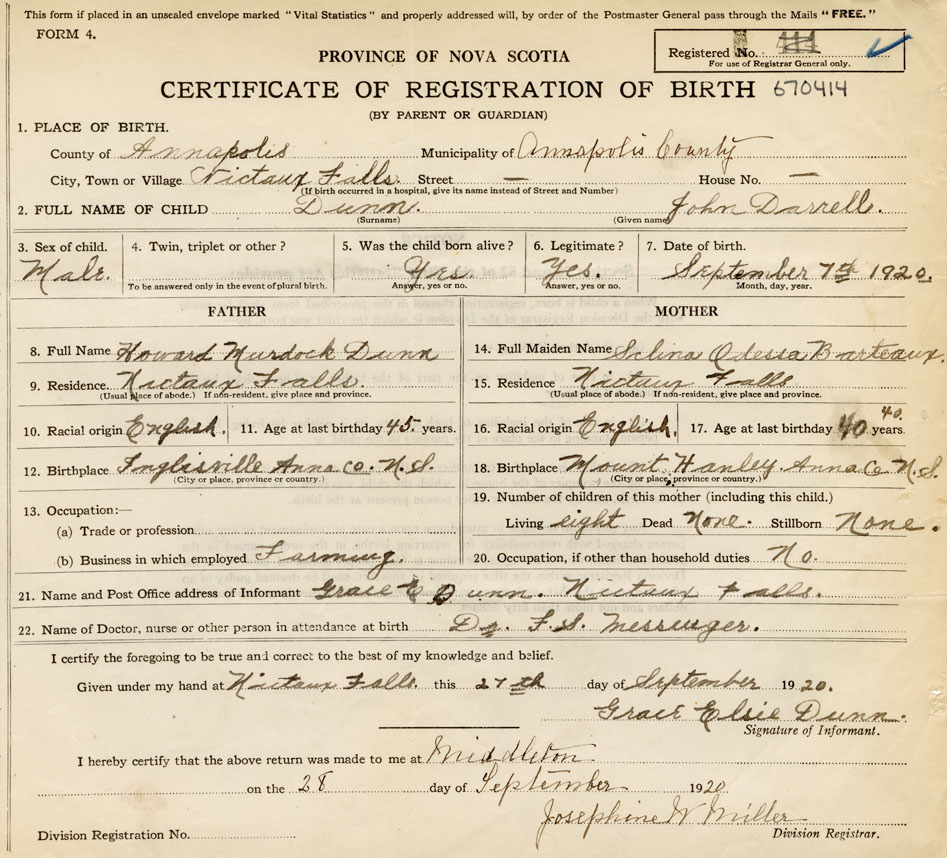 This form if placed in an unsealed envelope marked "Vital Statistics" and properly addressed will, by order of the Postmaster General pass through the Mails "FREE."
FORM 4.
Registered No. 411
For use of Registrar General only.
PROVINCE OF NOVA SCOTIA
CERTIFICATE OF REGISTRATION OF BIRTH 670414
(BY PARENT OR GUARDIAN)
1. PLACE OF BIRTH.
County of Annapolis Municipality of Annapolis County
City, Town or Village Nictaux Falls. Street — House No. —
(If birth occurred in a hospital, give its name instead of Street and Number)
2. FULL NAME OF CHILD Dunn. John Darrell.
(Surname) (Given name)
3. Sex of child. 4. Twin, triplet or other? 5. Was the child born alive? 6. Legitimate? 7. Date of birth.
Male. Yes. Yes. September 7th 1920.
To be answered only in the event of plural birth. Answer, yes or no. Answer, yes or no. Month, day, year.
FATHER MOTHER
8. Full Name Howard Murdock Dunn 14. Full Maiden Name Selina Odessa Barteaux.
9. Residence Nictaux Falls. 15. Residence Nictaux Falls
(Usual place of abode.) If non-resident, give place and province. (Usual place of abode.) If non-resident, give place and province.
10. Racial origin English. 11. Age at last birthday 45 years. 16. Racial origin English. 17. Age at last birthday 40 40 years
12. Birthplace Inglisville Anna Co. N.S. 18. Birthplace Mount Hanley Anna Co N.S.
(City or place, province or country.) (City or place, province or country.)
19. Number of children of this mother (including this child.)
13. Occupation:—
(a) Trade or profession Living eight Dead None. Stillborn None.
(b) Business in which employed Farming. 20. Occupation, if other than household duties No.
21. Name and Post Office address of Informant Grace E Dunn. Nictaux Falls.
22. Name of Doctor, nurse or other person in attendance at birth Dr. F. S. Messenger.
I certify the foregoing to be true and correct to the best of my knowledge and belief.
Given under my hand at Nictaux Falls. this 27th day of September 1920.
Grace Elsie Dunn.
Signature of Informant.
I hereby certify that the above return was made to me at Middleton
on the 28 day of September 1920
Josephine W Miller
Division Registration No. Division Registrar.